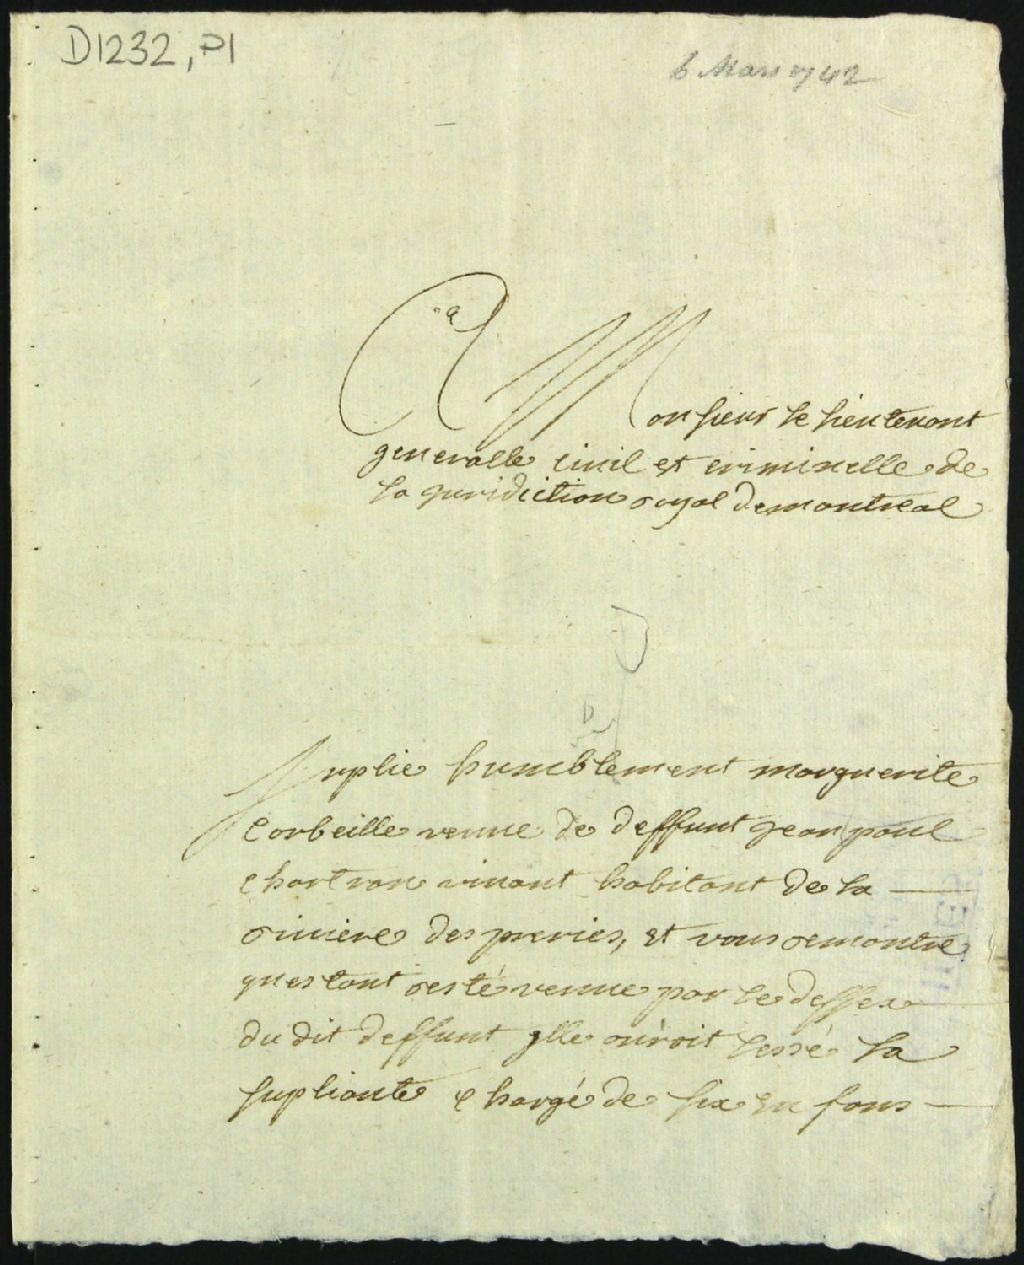 D1232, P1
6 Mars 1742
a Monsieur le lieutenant
generalle civil et criminelle de
la juridiction royal de montreal
Suplie humblement marguerite
Corbeille veuve de deffunt jean paul
chartran vivant habitant de la
riviere des preries, et vous remontre
questant resté veuve par le desses
du dit deffunt ylle auroit lessé la
supliante chargé de six enfans